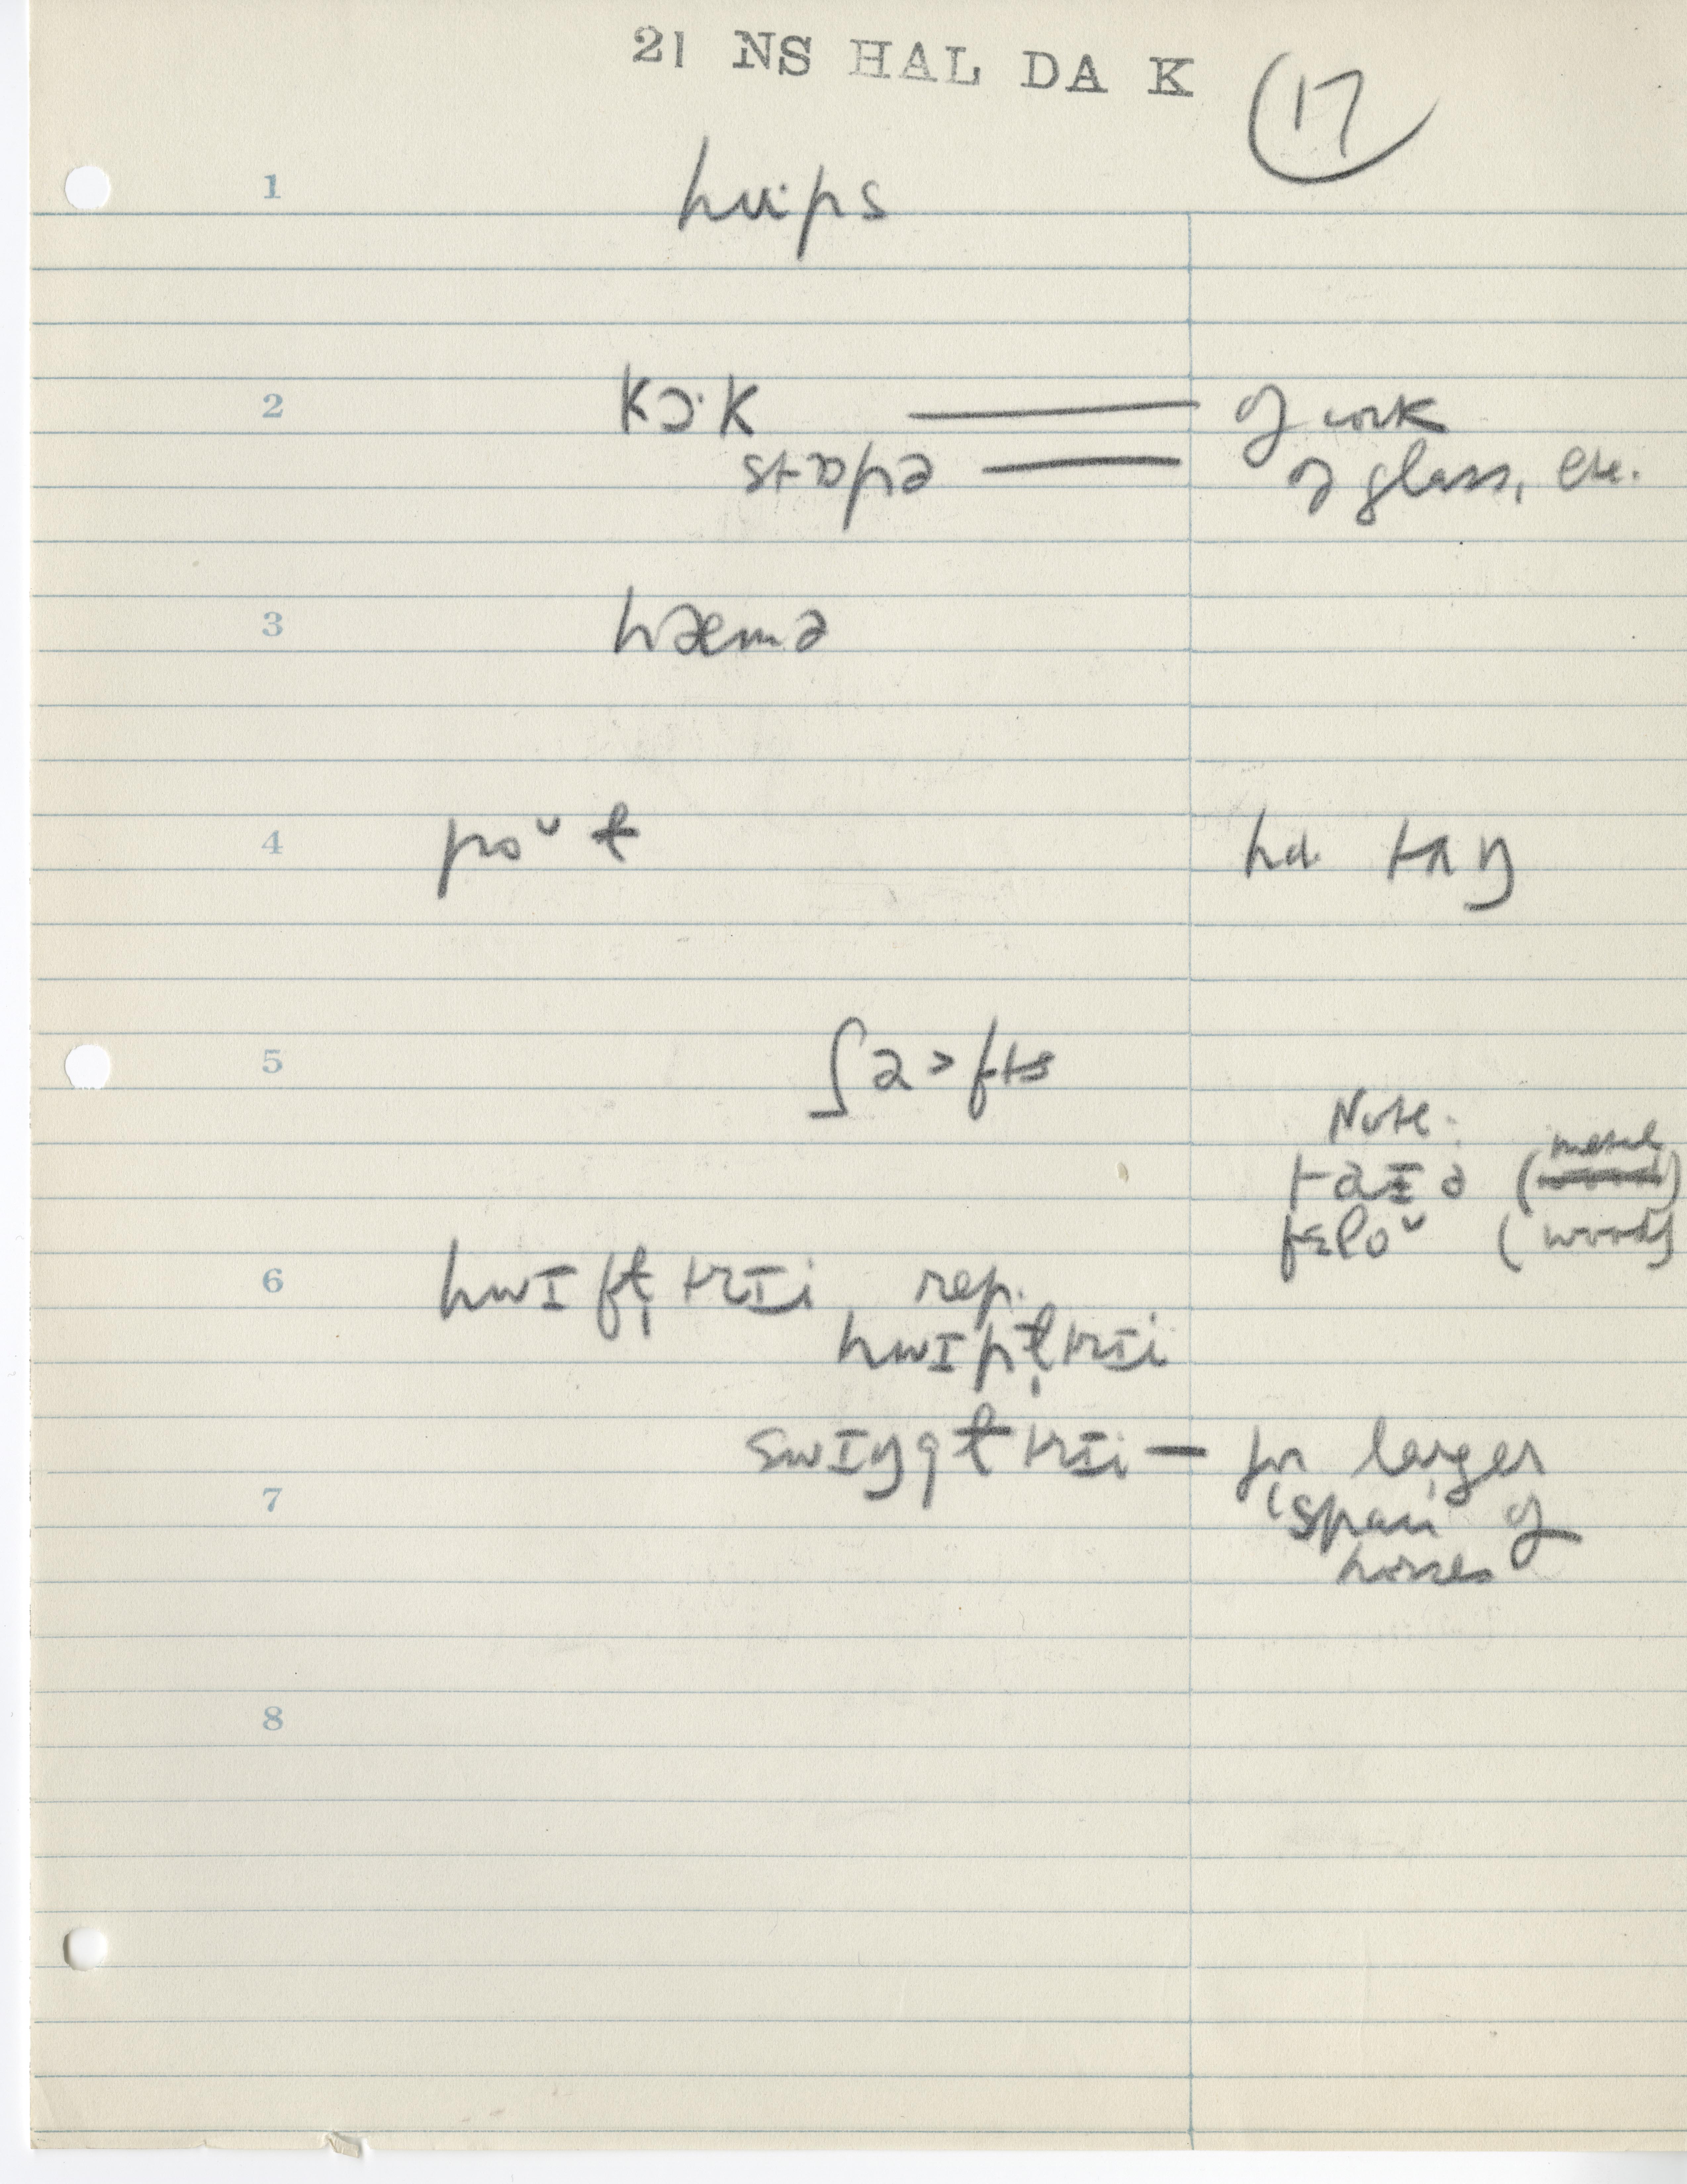 21 NS HAL DA K 17
1 hu·ps
2 kɔ·k —— of cork
stɒpə —— of glass, etc.
3 hæmə
4 poᵘt tʌŋ
5 ʃa>fts
Note:
taɪə (metal)
fɛloᵘ (wood)
6 hwɪft̩trɪi rep.
hwɪpt̩trɪi
swɪŋgtrɪi — for larger
7 'span' of
horses
8